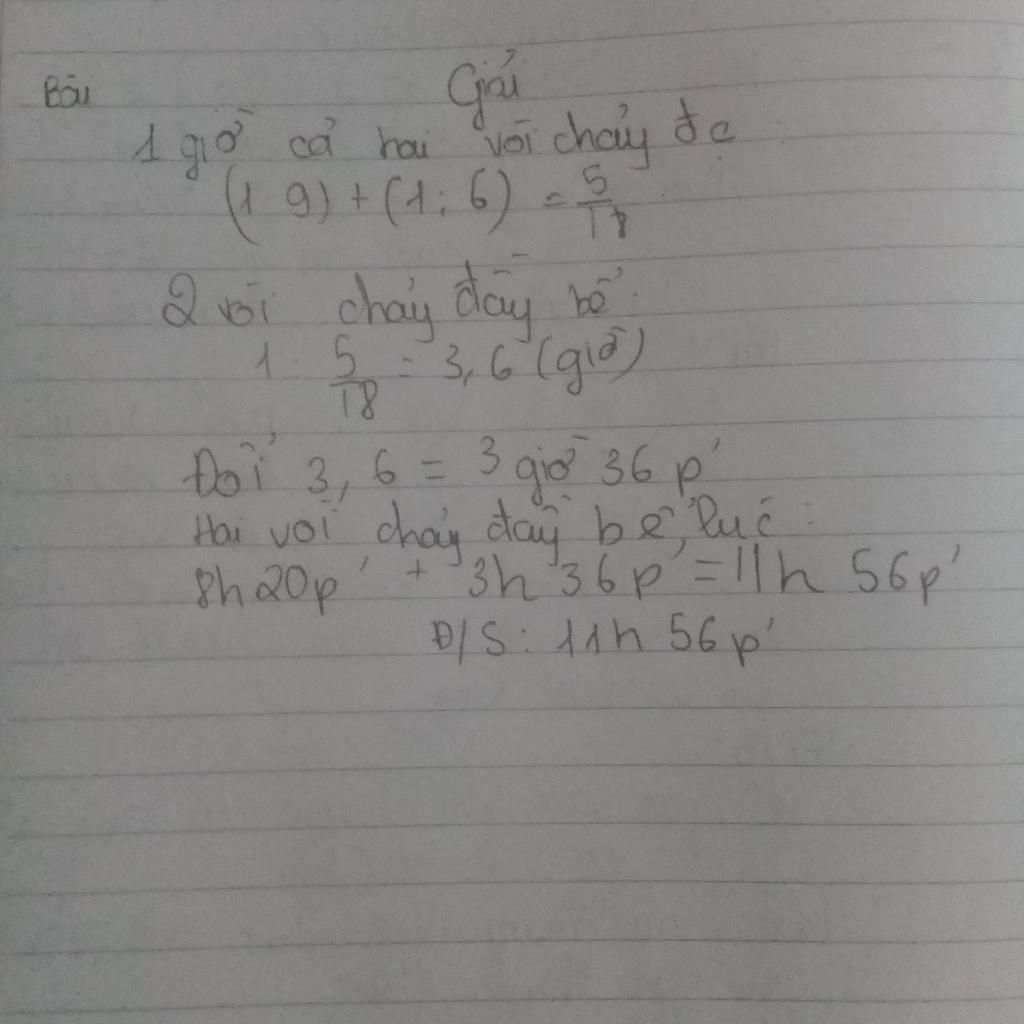 Bài
Giải
1 giờ cả hai vòi chảy đc
(1 9) + (1 : 6) = 5/18
2 vòi chảy đầy bể :
1 5/18 = 3,6 (giờ)
Đổi 3,6 = 3 giờ 36 p'
Hai vòi chảy đầy bể lúc :
8h 20p' + 3h 36p' = 11h 56p'
Đ/S : 11h 56p'